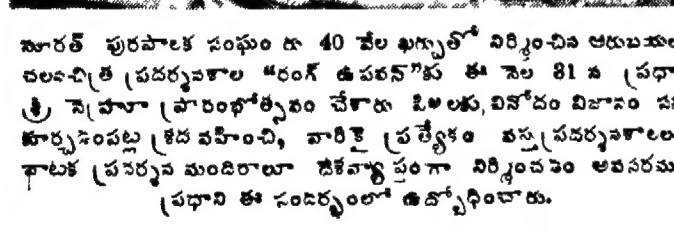 సూరత్ పురపాలక సంఘం రు 40 వేల ఖర్చుతో నిర్మించిన ఆరుబయల
చలనచిత్ర ప్రదర్శనశాల "రంగ్ ఉపవన్"కు ఈ నెల 31 న ప్రధా
శ్రీ నెహ్రూ ప్రారంభోత్సవం చేశారు పిల్లలకు, వినోదం విజ్ఞానం
కూర్చడంపట్ల శ్రద్ధ వహించి, వారికై ప్రత్యేకం వస్తు ప్రదర్శనశాలల
నాటక ప్రదర్శన మందిరాలూ దేశవ్యాప్తంగా నిర్మించడం అవసరమ
ప్రధాని ఈ సందర్భంలో ఉద్బోధించారు.